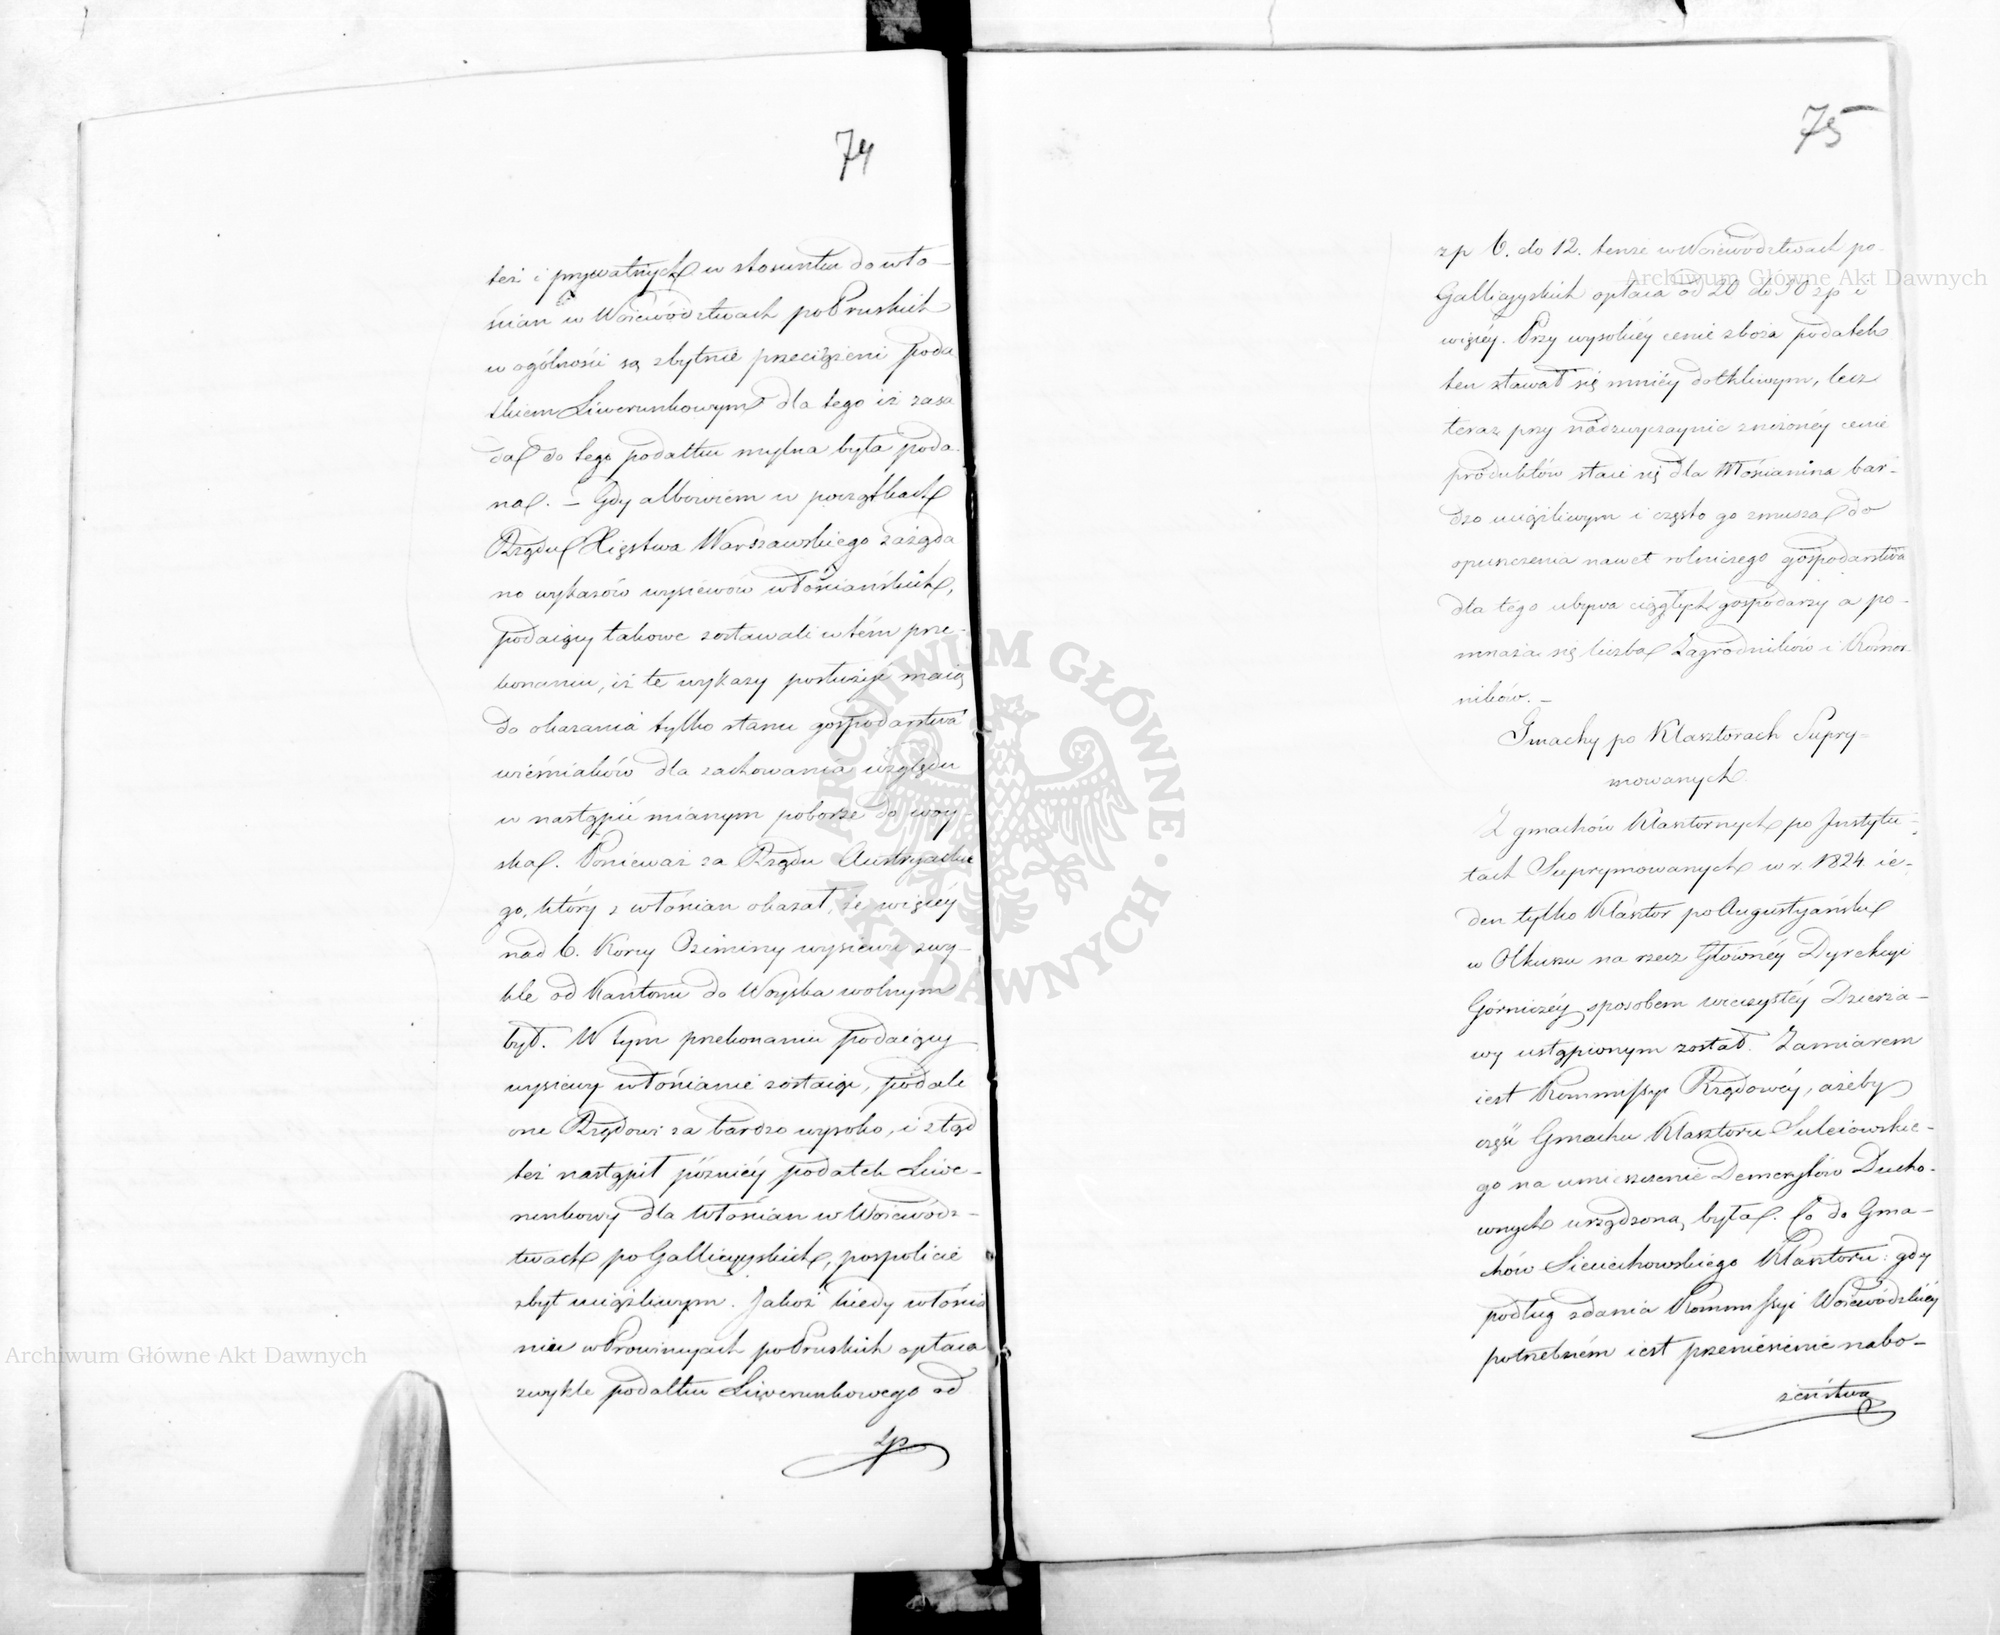 74
też i prywatnych w stosunku do wło-
ścian w Woiewództwach poPruskich
w ogólności są zbytnie przeciążeni poda
tkiem Liwerunkowym dla tego iż zasa
da do tego podatku mylna była poda
na. – Gdy albowiem w początkach
Rządu Xięstwa Warszawskiego zażąda
no wykazów wysiewów włościańskich,
podaiący takowe zostawali w tém prze-
konaniu, iż te wykazy posłużyć maią
do okazania tylko stanu gospodarstwa
wieśniaków dla zachowania względu
w nastąpić mianym poborze do woy-
ska. Ponieważ za Rządu Austryackie
go, który z włościan okazał, że więcéy
nad 6. Korcy Oziminy wysiewa zwy-
kle od Kantonu do Woyska wolnym
był. W tym przekonaniu podaiący
wysiewy włościanie zostaiąc, podali
one Rządowi za bardzo wysoko, i ztąd
też nastąpił późniéy podatek Liwe-
runkowy dla Włościan w Woiewódz-
twach po Gallicyyskich, pospolicie
zbyt uciążliwym. Jakoż kiedy włościa
nin w Prowincyach poPruskich opłaca
zwykle podatku Liwerunkowego od
zp.
75
zp 6. do 12. tenże w Woiewództwach po-
Gallicyyskich opłaca od 20 do 30 zp i
więcéy. Przy wysokiéy cenie zboża podatek
ten stawał się mniéy dotkliwym, lecz
teraz przy nadzwyczaynie zniżonéy cenie
produktów staie się dla Włościanina bar-
dzo uciążliwym i często go zmusza do
opuszczenia nawet rolniczego gospodarstwa
dla tego ubywa ciągłych gospodarzy a po-
mnaża się liczba Zagrodników i Komor
ników. –
Gmachy po Klasztorach Supry-
mowanych.
Z gmachów Klasztornych po Instytu-
tach Suprymowanych w r. 1824. ie-
den tylko Klasztor po Augustyański
w Olkuszu na rzecz Głównéy Dyrekcyi
Górniczéy sposobem wieczystéy Dzierża-
wy ustąpionym został. Zamiarem
iest Kommissyi Rządowéy, ażeby
część Gmachu Klasztoru Suleiowskie-
go na umieszczenie Demerytów Ducho-
wnych urządzoną była. Co do Gma-
chów Sieciechowskiego Klasztoru: gdy
podług zdania Kommissyi Woiewódzkiéy
potrzebném iest przeniesienie nabo-
żeństwa
Archiwum Główne Akt Dawnych
Archiwum Główne Akt Dawnych
ARCHIWUM GŁÓWNE AKT DAWNYCH